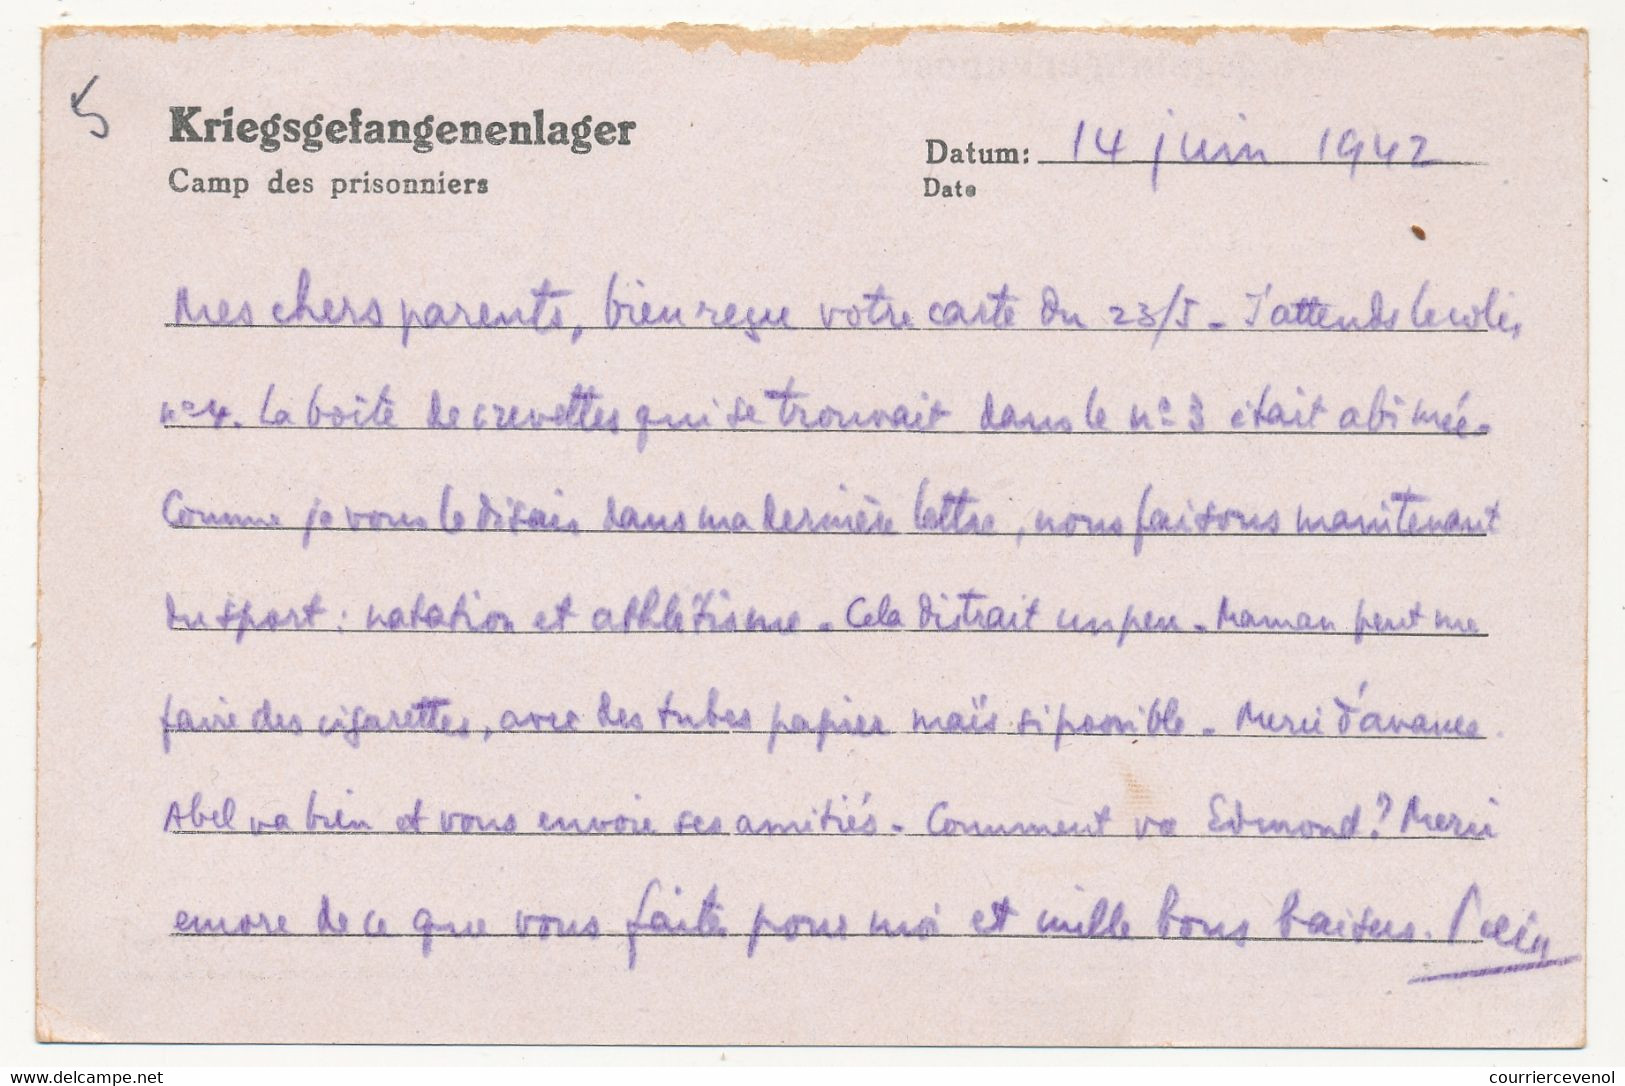 Kriegsgefangenenlager
Camp des prisonniers
Datum: 14 juin 1942
Date
Mes chers parents, bien reçu votre carte du 23/5 - J'attends le colis
n° 4. La boite de crevettes qui se trouvait dans le n° 3 était abimée.
Comme je vous le disais dans ma dernière lettre, nous faisons maintenant
du sport : natation et athlétisme - Cela distrait un peu - Maman peut me
faire des cigarettes, avec des tubes papier maïs si possible - Merci d'avance.
Abel va bien et vous envoie ses amitiés - Comment va Edmond ? Merci
encore de ce que vous faites pour moi et mille bons baisers.
www.delcampe.net
courriercevenol